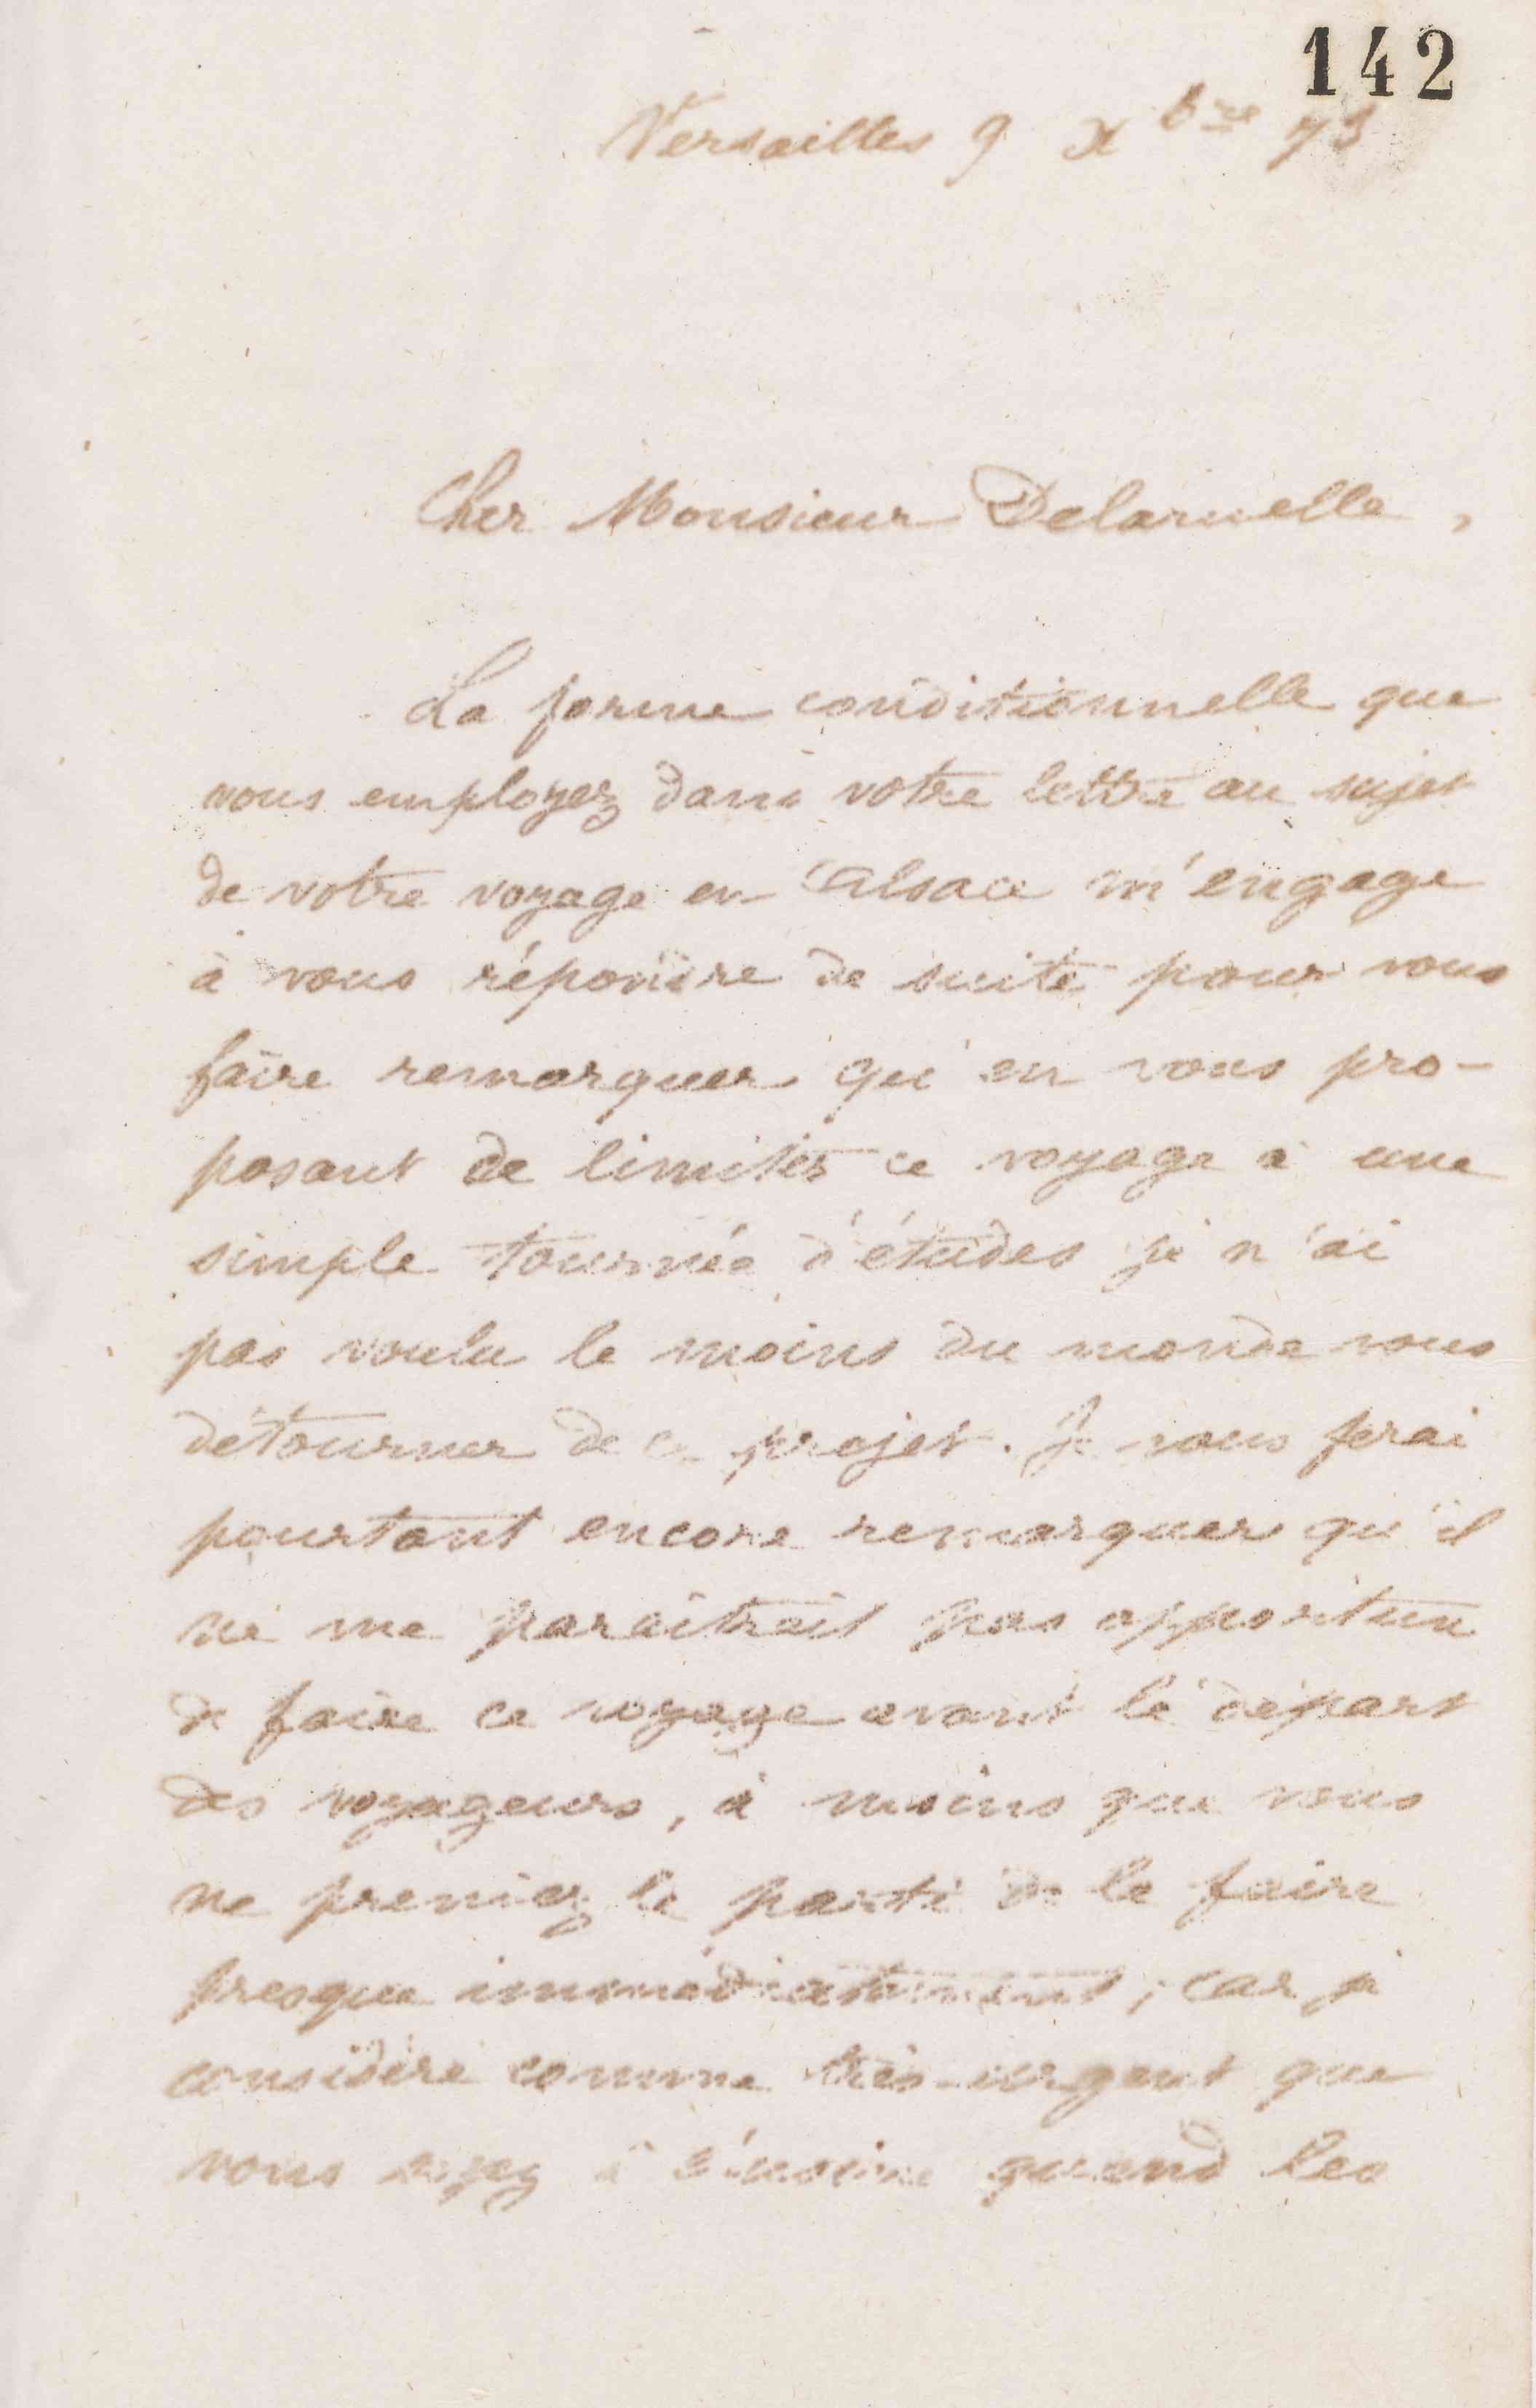 142
Versailles 9 Xbre 73
Cher Monsieur Delaruelle,
La forme conditionnelle que
vous employez dans votre lettre au sujet
de votre voyage en Alsace m'engage
à vous répondre de suite pour vous
faire remarquer qu'en vous pro-
posant de limiter ce voyage à une
simple tournée d'études je n'ai
pas voulu le moins du monde vous
détourner de ce projet. Je vous ferai
pourtant encore remarquer qu'il
ne me paraîtrait pas opportun
de faire ce voyage avant le départ
des voyageurs, à moins que vous
ne preniez le parti de le faire
presque immédiatement; car je
considère comme très-urgent que
vous soyez à quand les